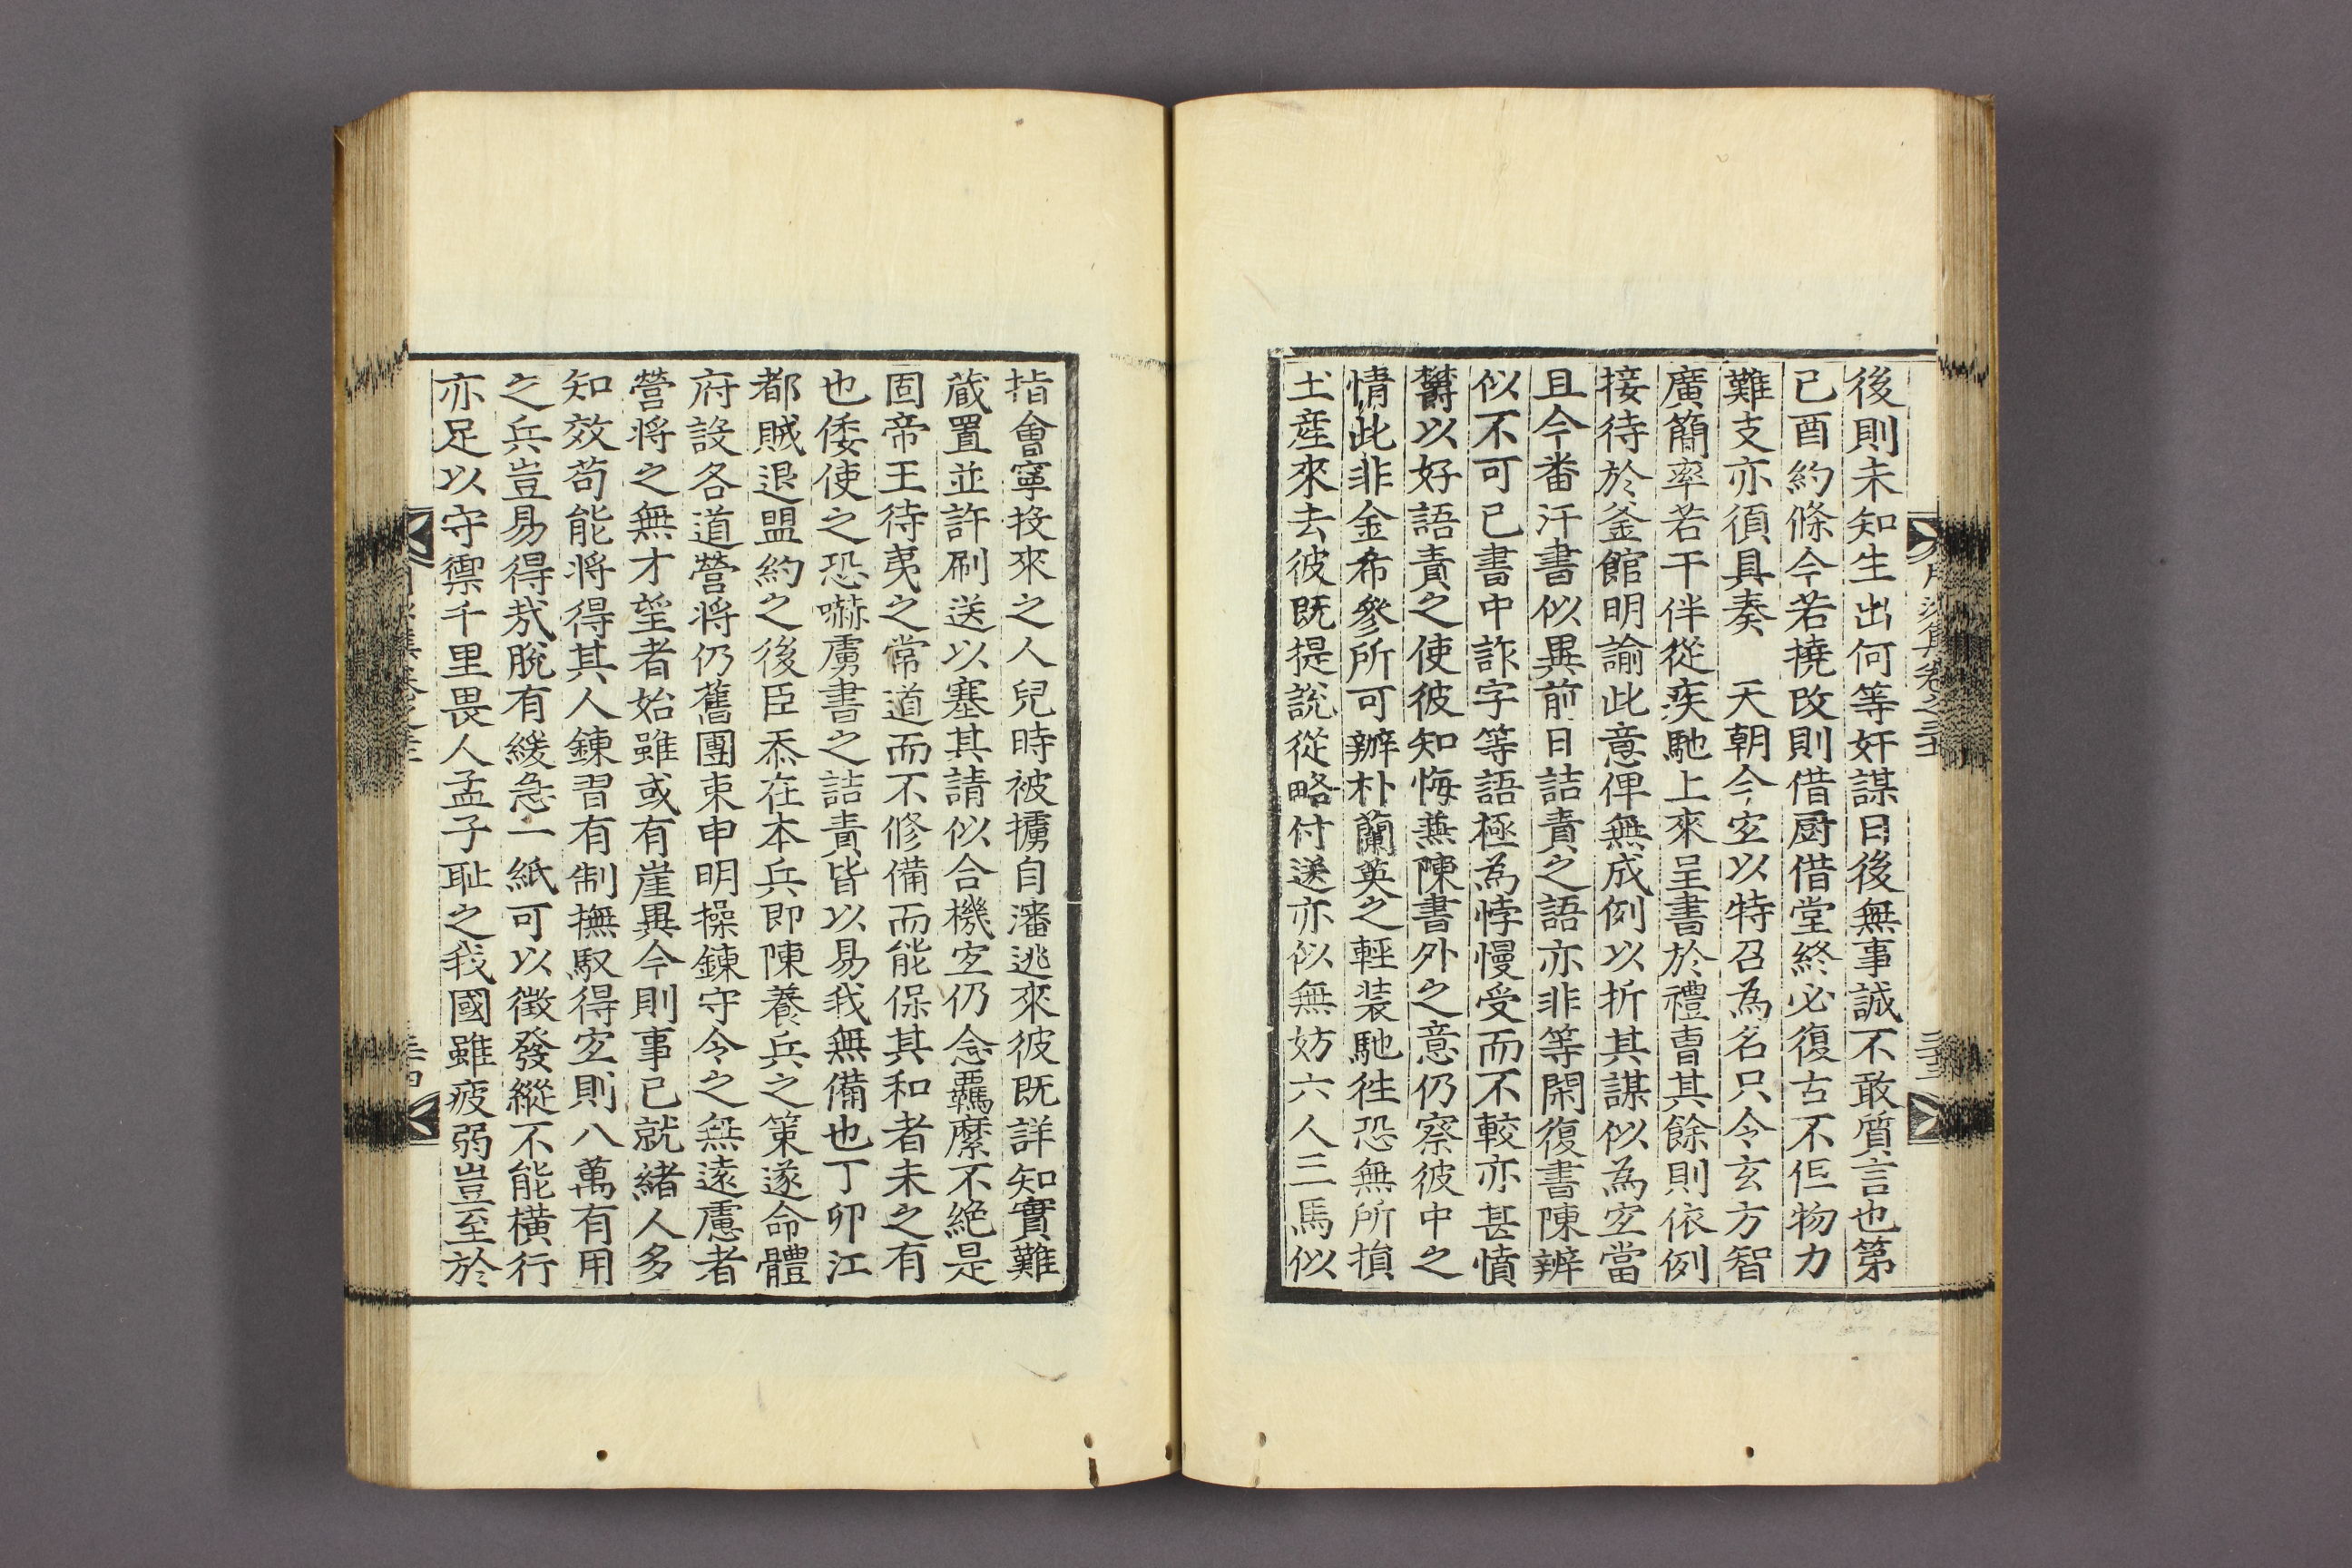 後則未知生出何等奸謀日後無事誠不敢質言也第
己酉約條今若撓改則借厨借堂終必復古不但物力
難支亦須具奏 天朝今宜以特召為名只令玄方智
廣簡率若干伴從疾馳上來呈書於禮曹其餘則依例
接待於釜館明諭此意俾無成例以折其謀似為宜當
且今番汗書似異前日詰責之語亦非等閑復書陳辨
似不可已書中詐字等語極為悖慢受而不較亦甚憤
欝以好語責之使彼知悔無陳書外之意仍察彼中之
情此非金希參所可辦朴蘭英之輕装馳徃恐無所損
土産來去彼既提說從略付送亦似無妨六人三馬似
指會寧投來之人兒時被擄自瀋逃來彼既詳知實難
蔵置並許刷送以塞其請似合機宜仍念羈縻不絶是
固帝王待夷之常道而不修備而能保其和者未之有
也倭使之恐嚇虜書之詰責皆以易我無備也丁卯江
都賊退盟約之後臣忝在本兵即陳養兵之策遂命體
府設各道營將仍舊團束申明操鍊守令之無遠慮者
營將之無才望者始雖或有崖異今則事已就緒人多
知效苟能將得其人鍊習有制撫馭得宜則八萬有用
之兵豈易得㢤脫有緩急一紙可以徵發縱不能橫行
亦足以守禦千里畏人孟子耻之我國雖疲弱豈至於